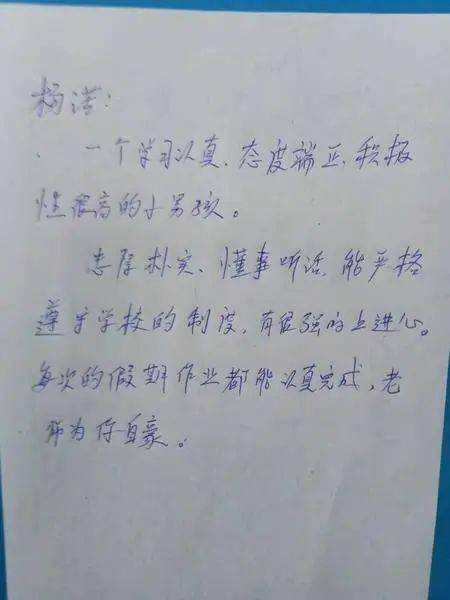 杨诺：
一个学习认真、态度端正、积极
性很高的小男孩。
忠厚朴实、懂事听话，能严格
遵守学校的制度，有很强的上进心。
每次的假期作业都能认真完成，老
师为你自豪。